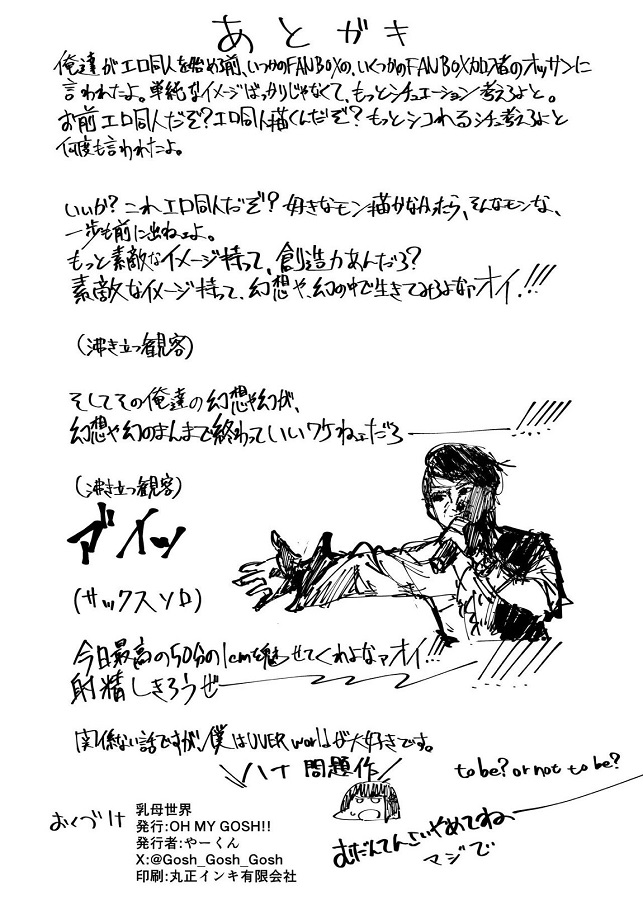 あとがき
俺達がエロ同人を始める前、いつかのFANBOXの、いくつかのFANBOX加入者のオッサンに
言われたよ。単純なイメージばっかりじゃなくて、もっとシチュエーション考えろよと。
お前エロ同人だぞ?エロ同人描くんだぞ?もっとシコれるシチュ考えろよと
何度も言われたよ。
いいか?これエロ同人だぞ?好きなモン描かなかったら、そんなモンな、
一歩も前に出ねェよ。
もっと素敵なイメージ持って、創造力あんだろ?
素敵なイメージ持って、幻想や、幻の中で生きてみろよなァオイ!!!!
(沸き立つ観客)
そしてその俺達の幻想や幻が、
幻想や幻のまんまで終わっていいワケねェだろ――!!!!
(沸き立つ観客)
アイッ
(サックスソロ)
今日最高の50分の1cmを魅せてくれよなァオイ!!!
射精しきろうぜ――!!!!
関係ない話ですが、僕はUVERworldが大好きです。
ハナ問題作
to be? or not to be?
むだんてんさいやめてね、
マジで
おくづけ
乳母世界
発行:OH MY GOSH!!
発行者:やーくん
X:@Gosh_Gosh_Gosh
印刷:丸正インキ有限会社